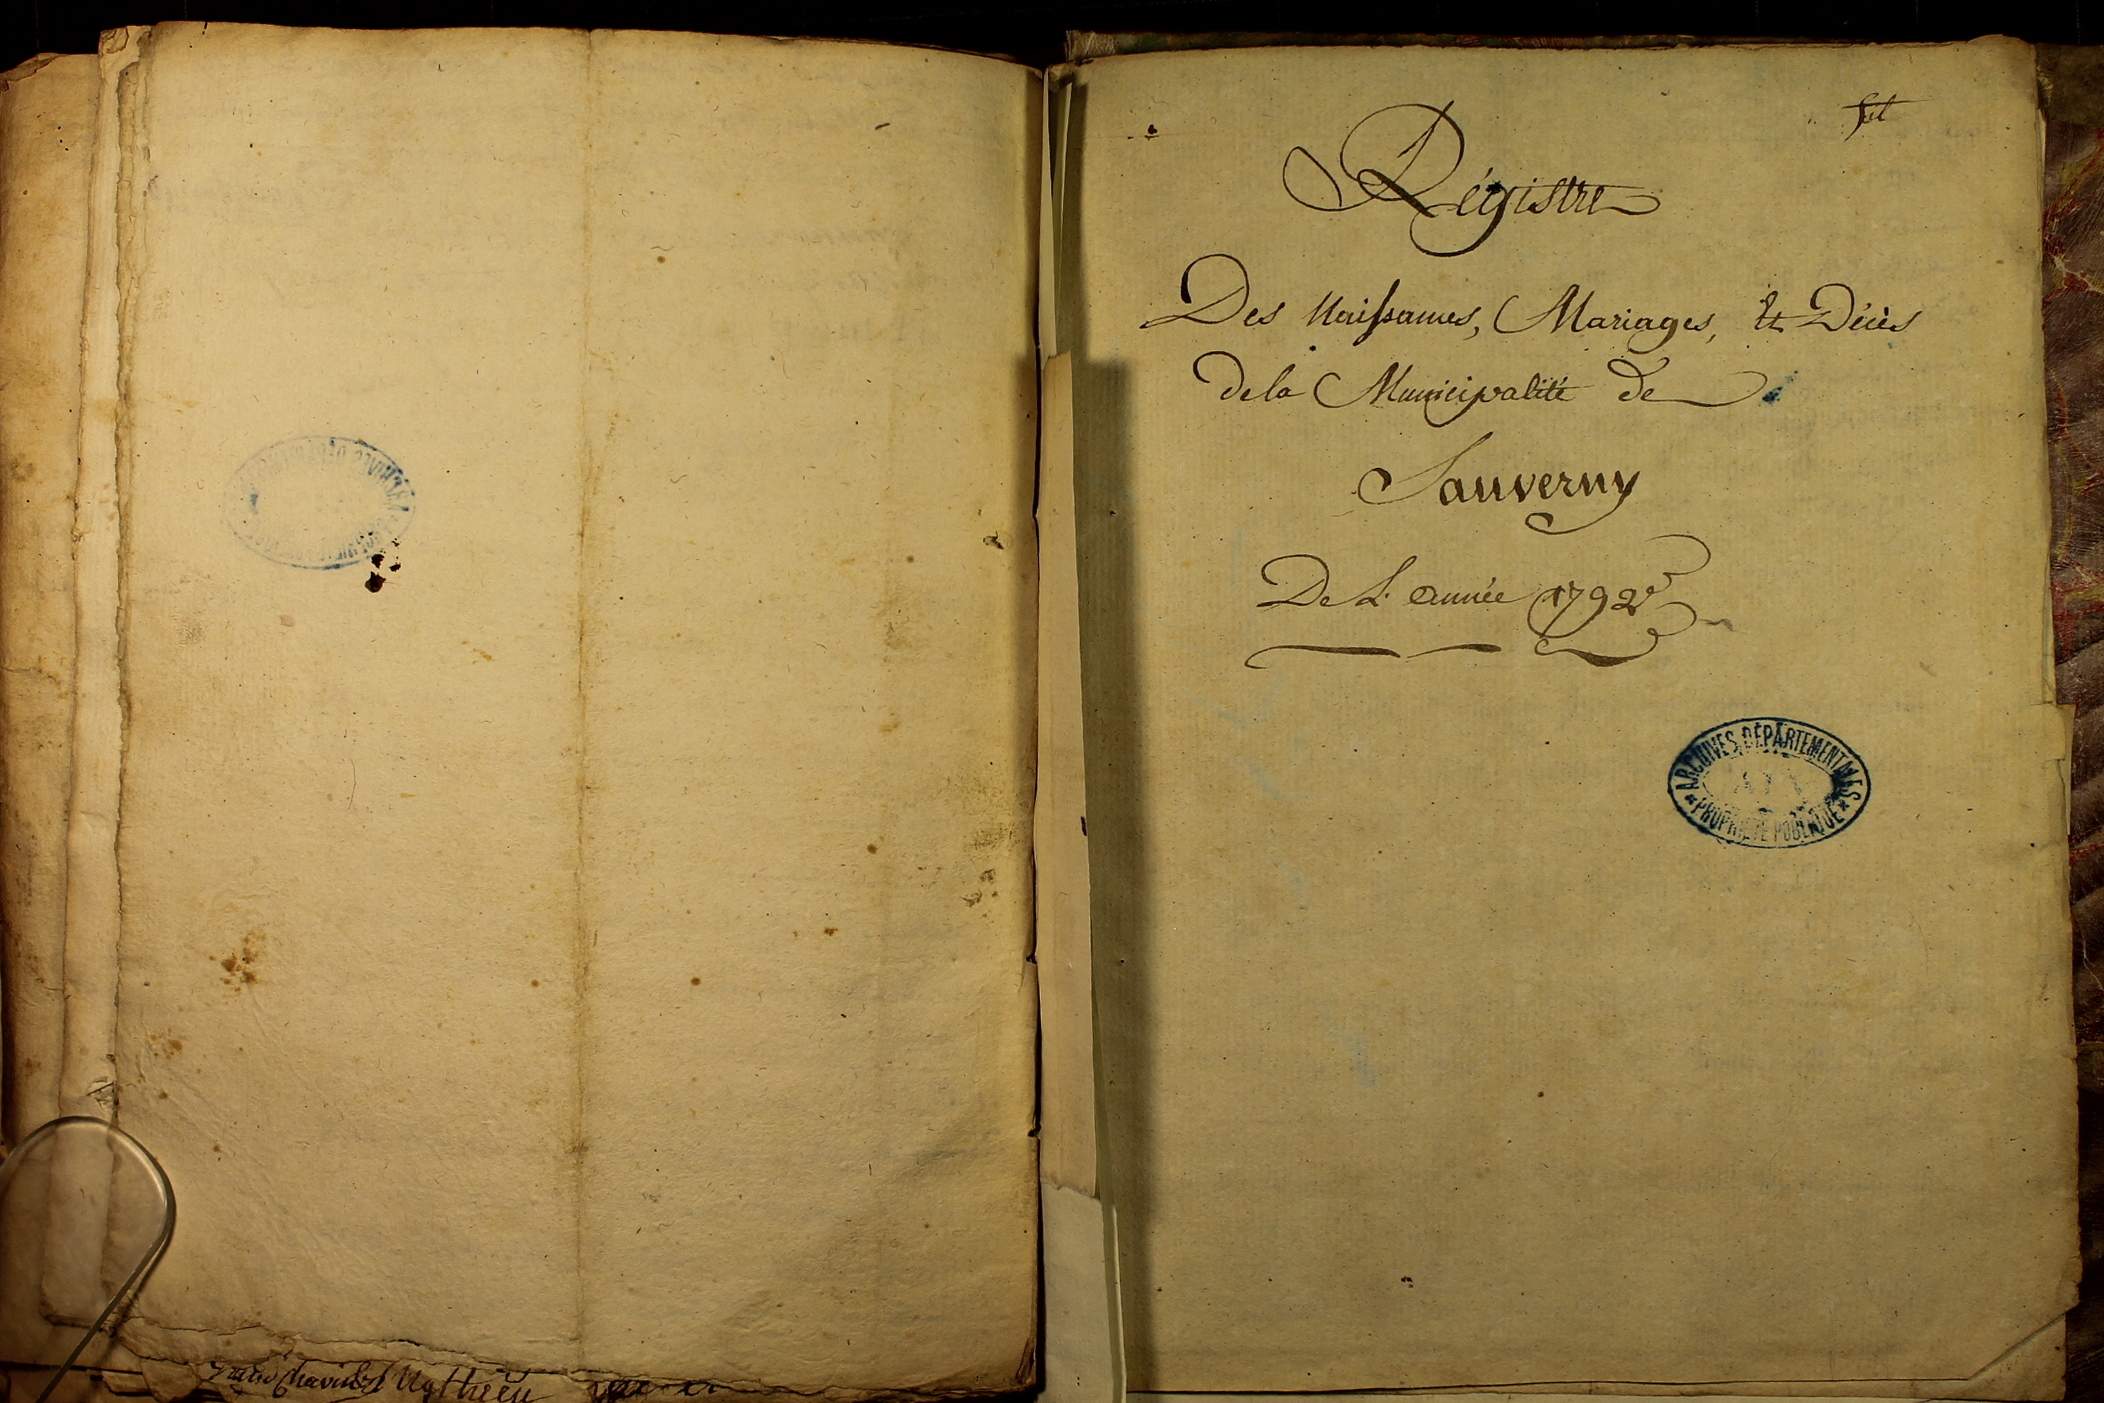 Régistre
Des Naissances, Mariages, et Décès
de la Municipalité de
Sauverny
De L'année 1792
ARCHIVES DÉPARTEMENTALES
AIN
PROPRIÉTÉ PUBLIQUE